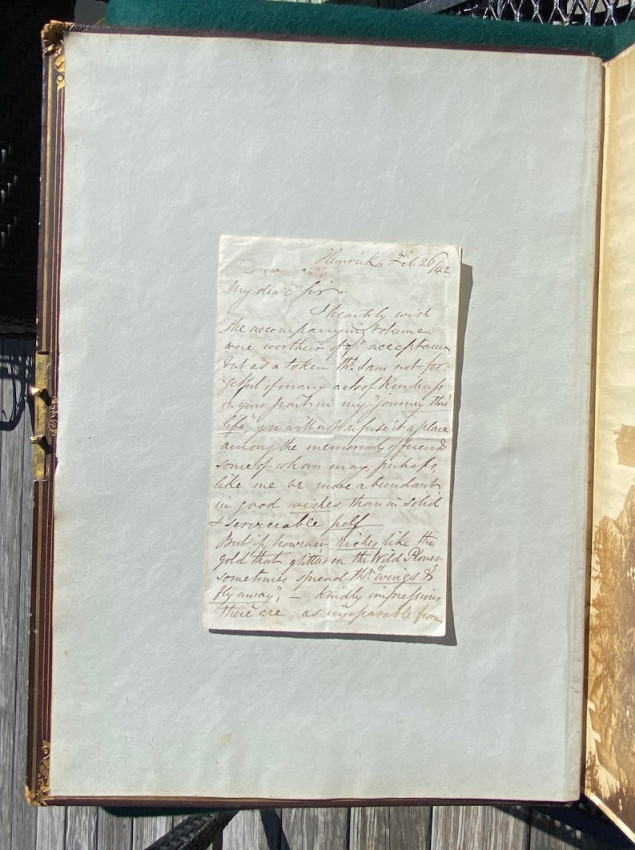 Feb 26/42
My dear Sir
I heartily wish
the accompanying volume
were worthier of yr acceptance
but as a token tht I am not for-
getful of many acts of Kindness
on your part in my "journey thro
life, you will not refuse it a place
among the memorials of friends
some of whom may, perhaps,
like me be more abundant
in good wishes than in solid
& serviceable pelf
But if however riches like the
gold that glitters on the Wild Plover
sometimes spread thr "wings &
fly away", — Kindly impressions
there are, as inseparable from